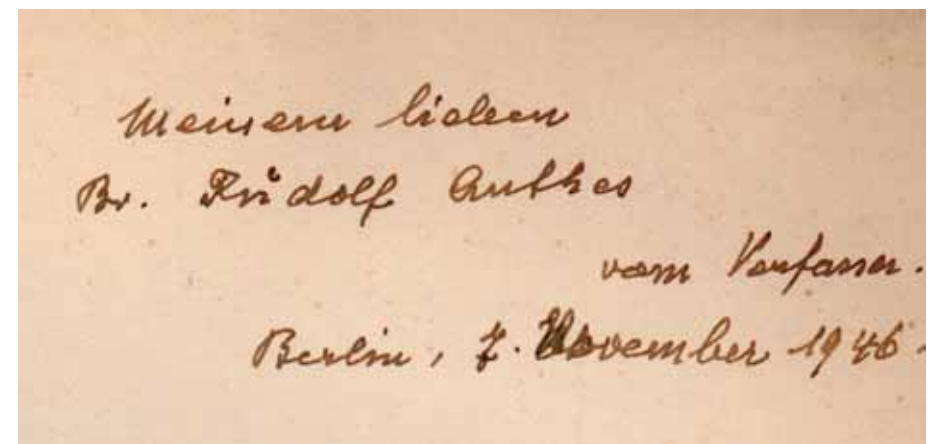 Meinem lieben
Br. Rudolf Anthes
vom Verfasser.
Berlin, 7. November 1946.